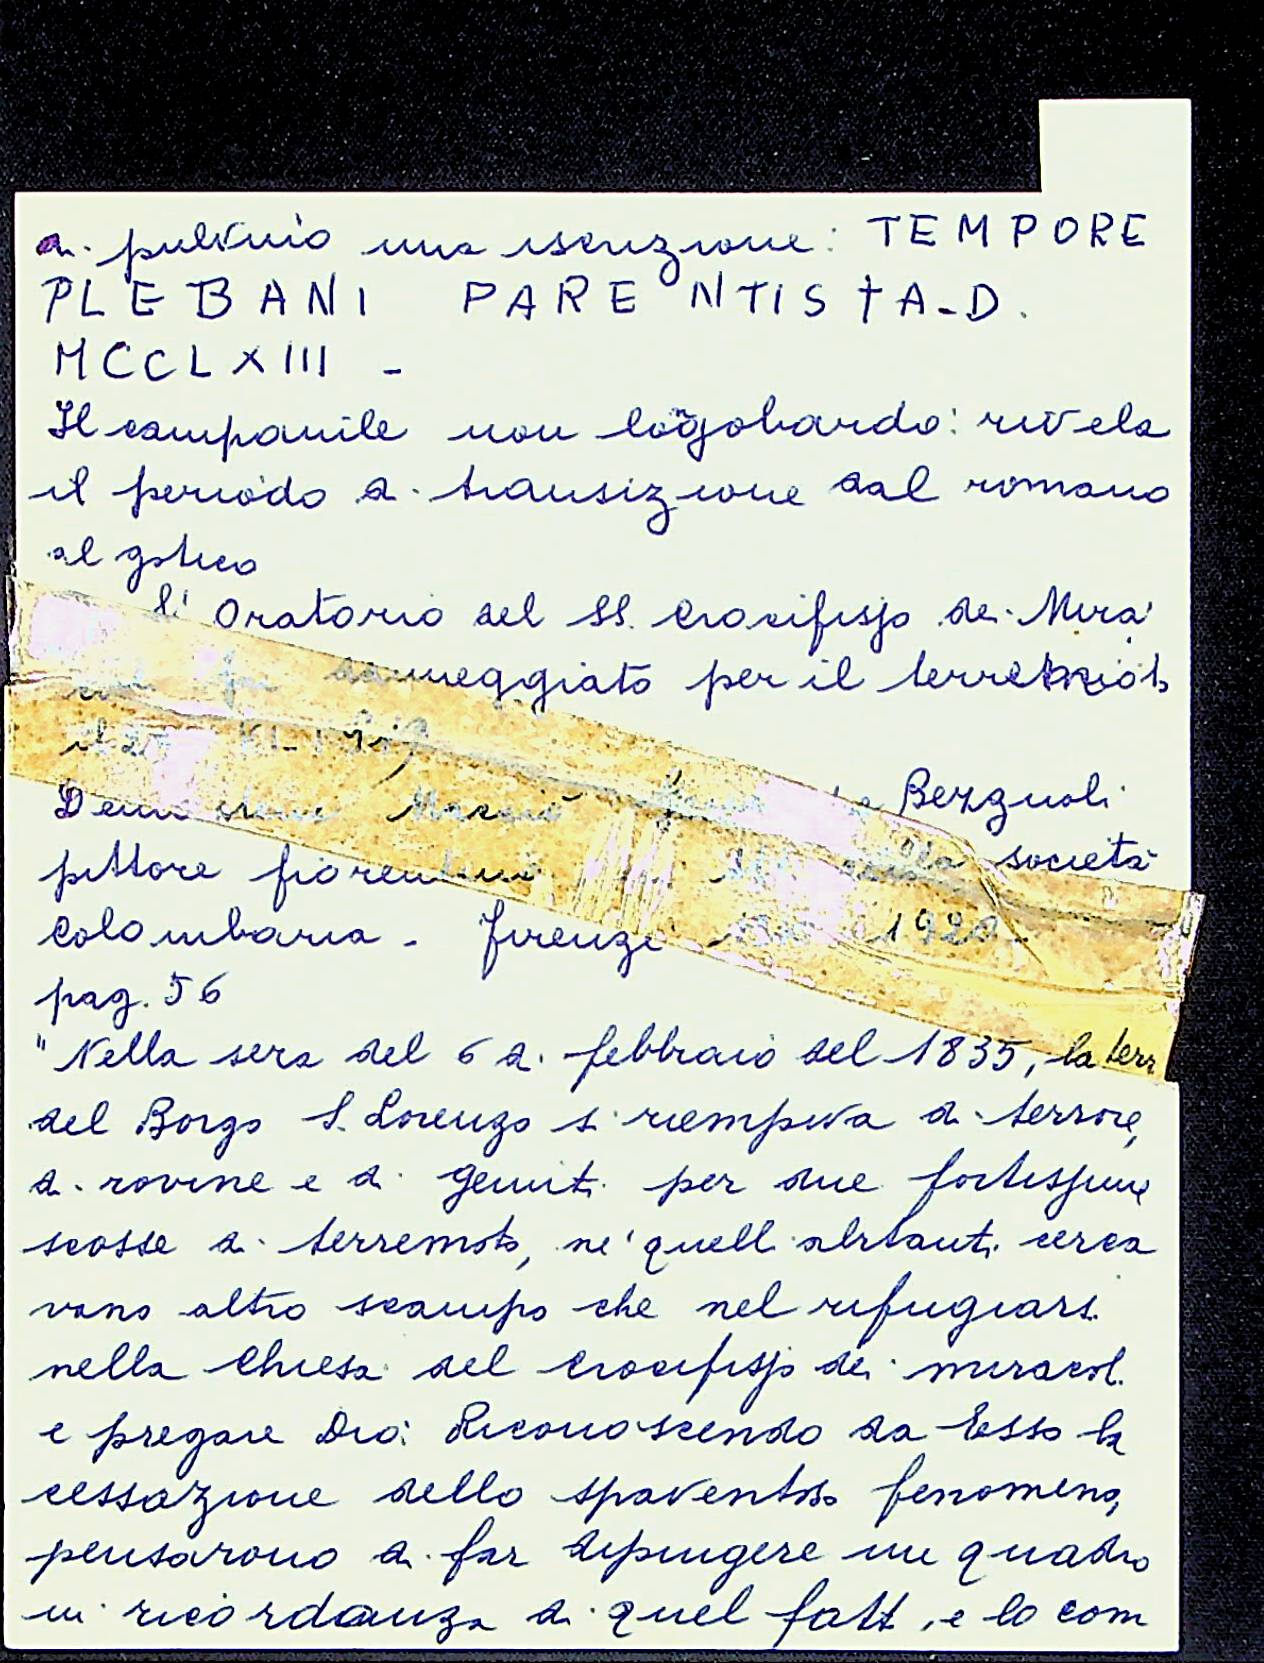 di pulvino una iscrizione: TEMPORE
PLEBANI PARENTIS † A-D.
MCCLXIII -
Il campanile non lōgobardo: rivela
il periodo di transizione dal romano
al gotico
L'Oratorio del SS. Crocifisso dei Mira
fu danneggiato per il terremoto
il
Bezzuoli
pittore fiorentino società
Colombaria - Firenze 1920 -
pag. 56
"Nella sera del 6 di febbraio del 1835, la terr
del Borgo S. Lorenzo si riempiva di terrore,
di rovine e di gemiti per due fortissime
scosse di terremoto, nè quelli abitanti cerca
vano altro scampo che nel rifugiarsi
nella Chiesa del Crocifisso dei miracoli
e pregare Dio: Riconoscendo da Esso la
cessazione dello spaventoso fenomeno,
pensarono di far dipingere un quadro
in ricordanza di quel fatt, e lo com